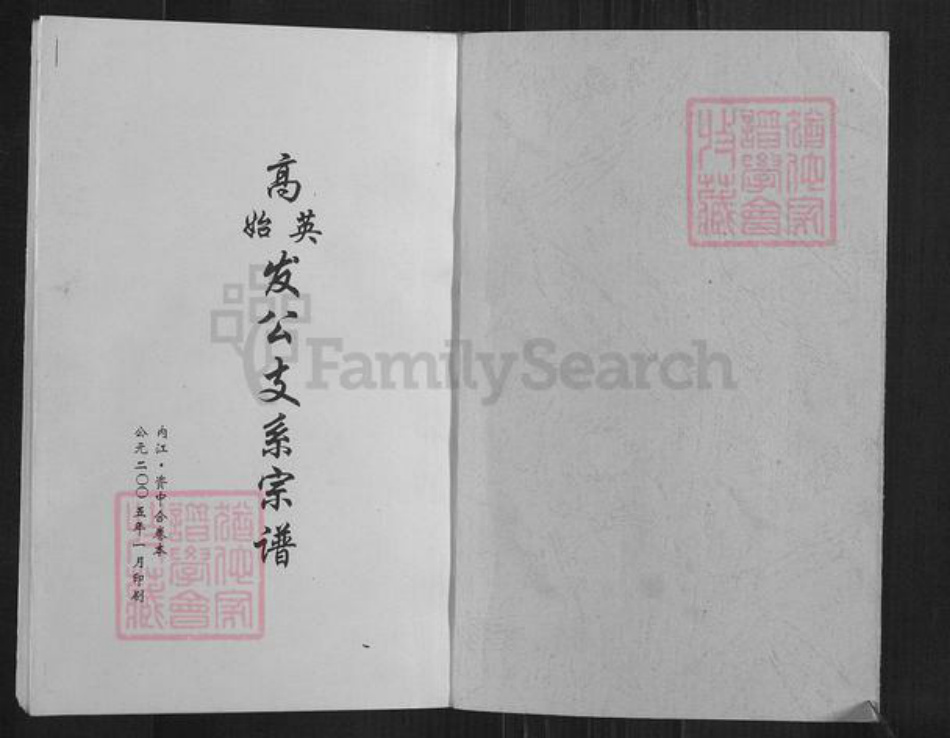 高
英
始
发公支系宗谱
内江·资中合卷本
公元二〇〇五年一月印刷
猶他家
譜學會
特藏
猶他家
譜學會
特藏
FamilySearch